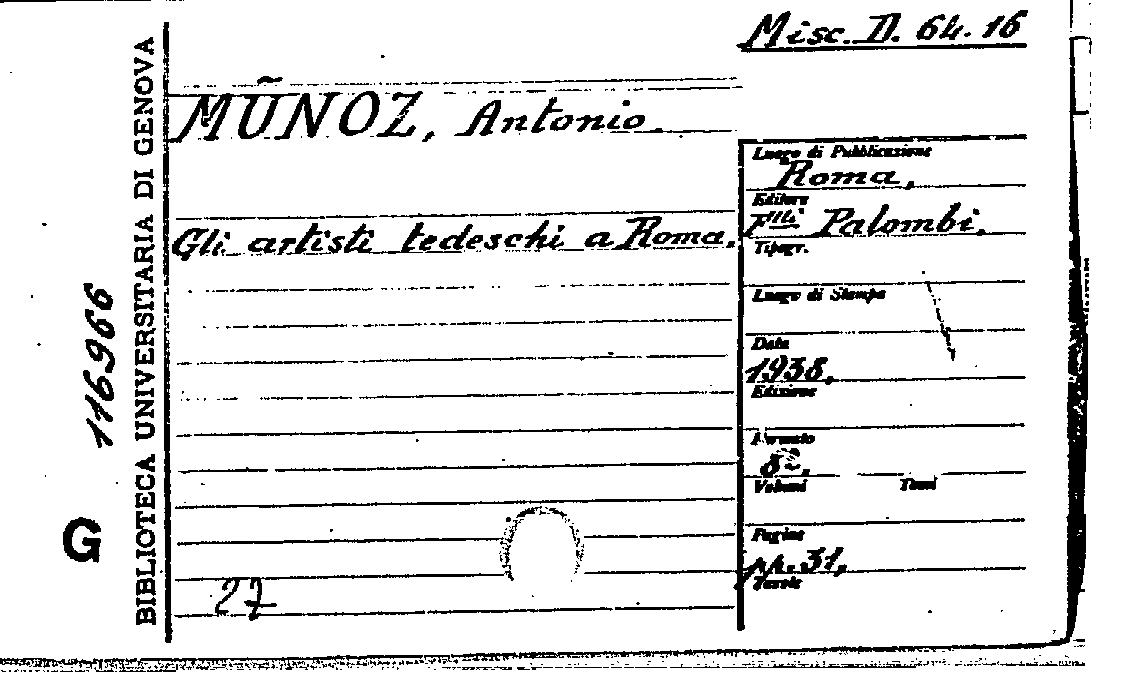 Misc. D. 64. 16
MUÑOZ, Antonio.
Gli artisti tedeschi a Roma.
Luogo di Pubblicazione
Roma,
Editore
F.lli Palombi.
Tipogr.
Luogo di Stampa
Data
1938.
Edizione
Formato
8°.
Volumi Tomi
Pagine
pp. 31,
Tavole
27
BIBLIOTECA UNIVERSITARIA DI GENOVA
116966
G